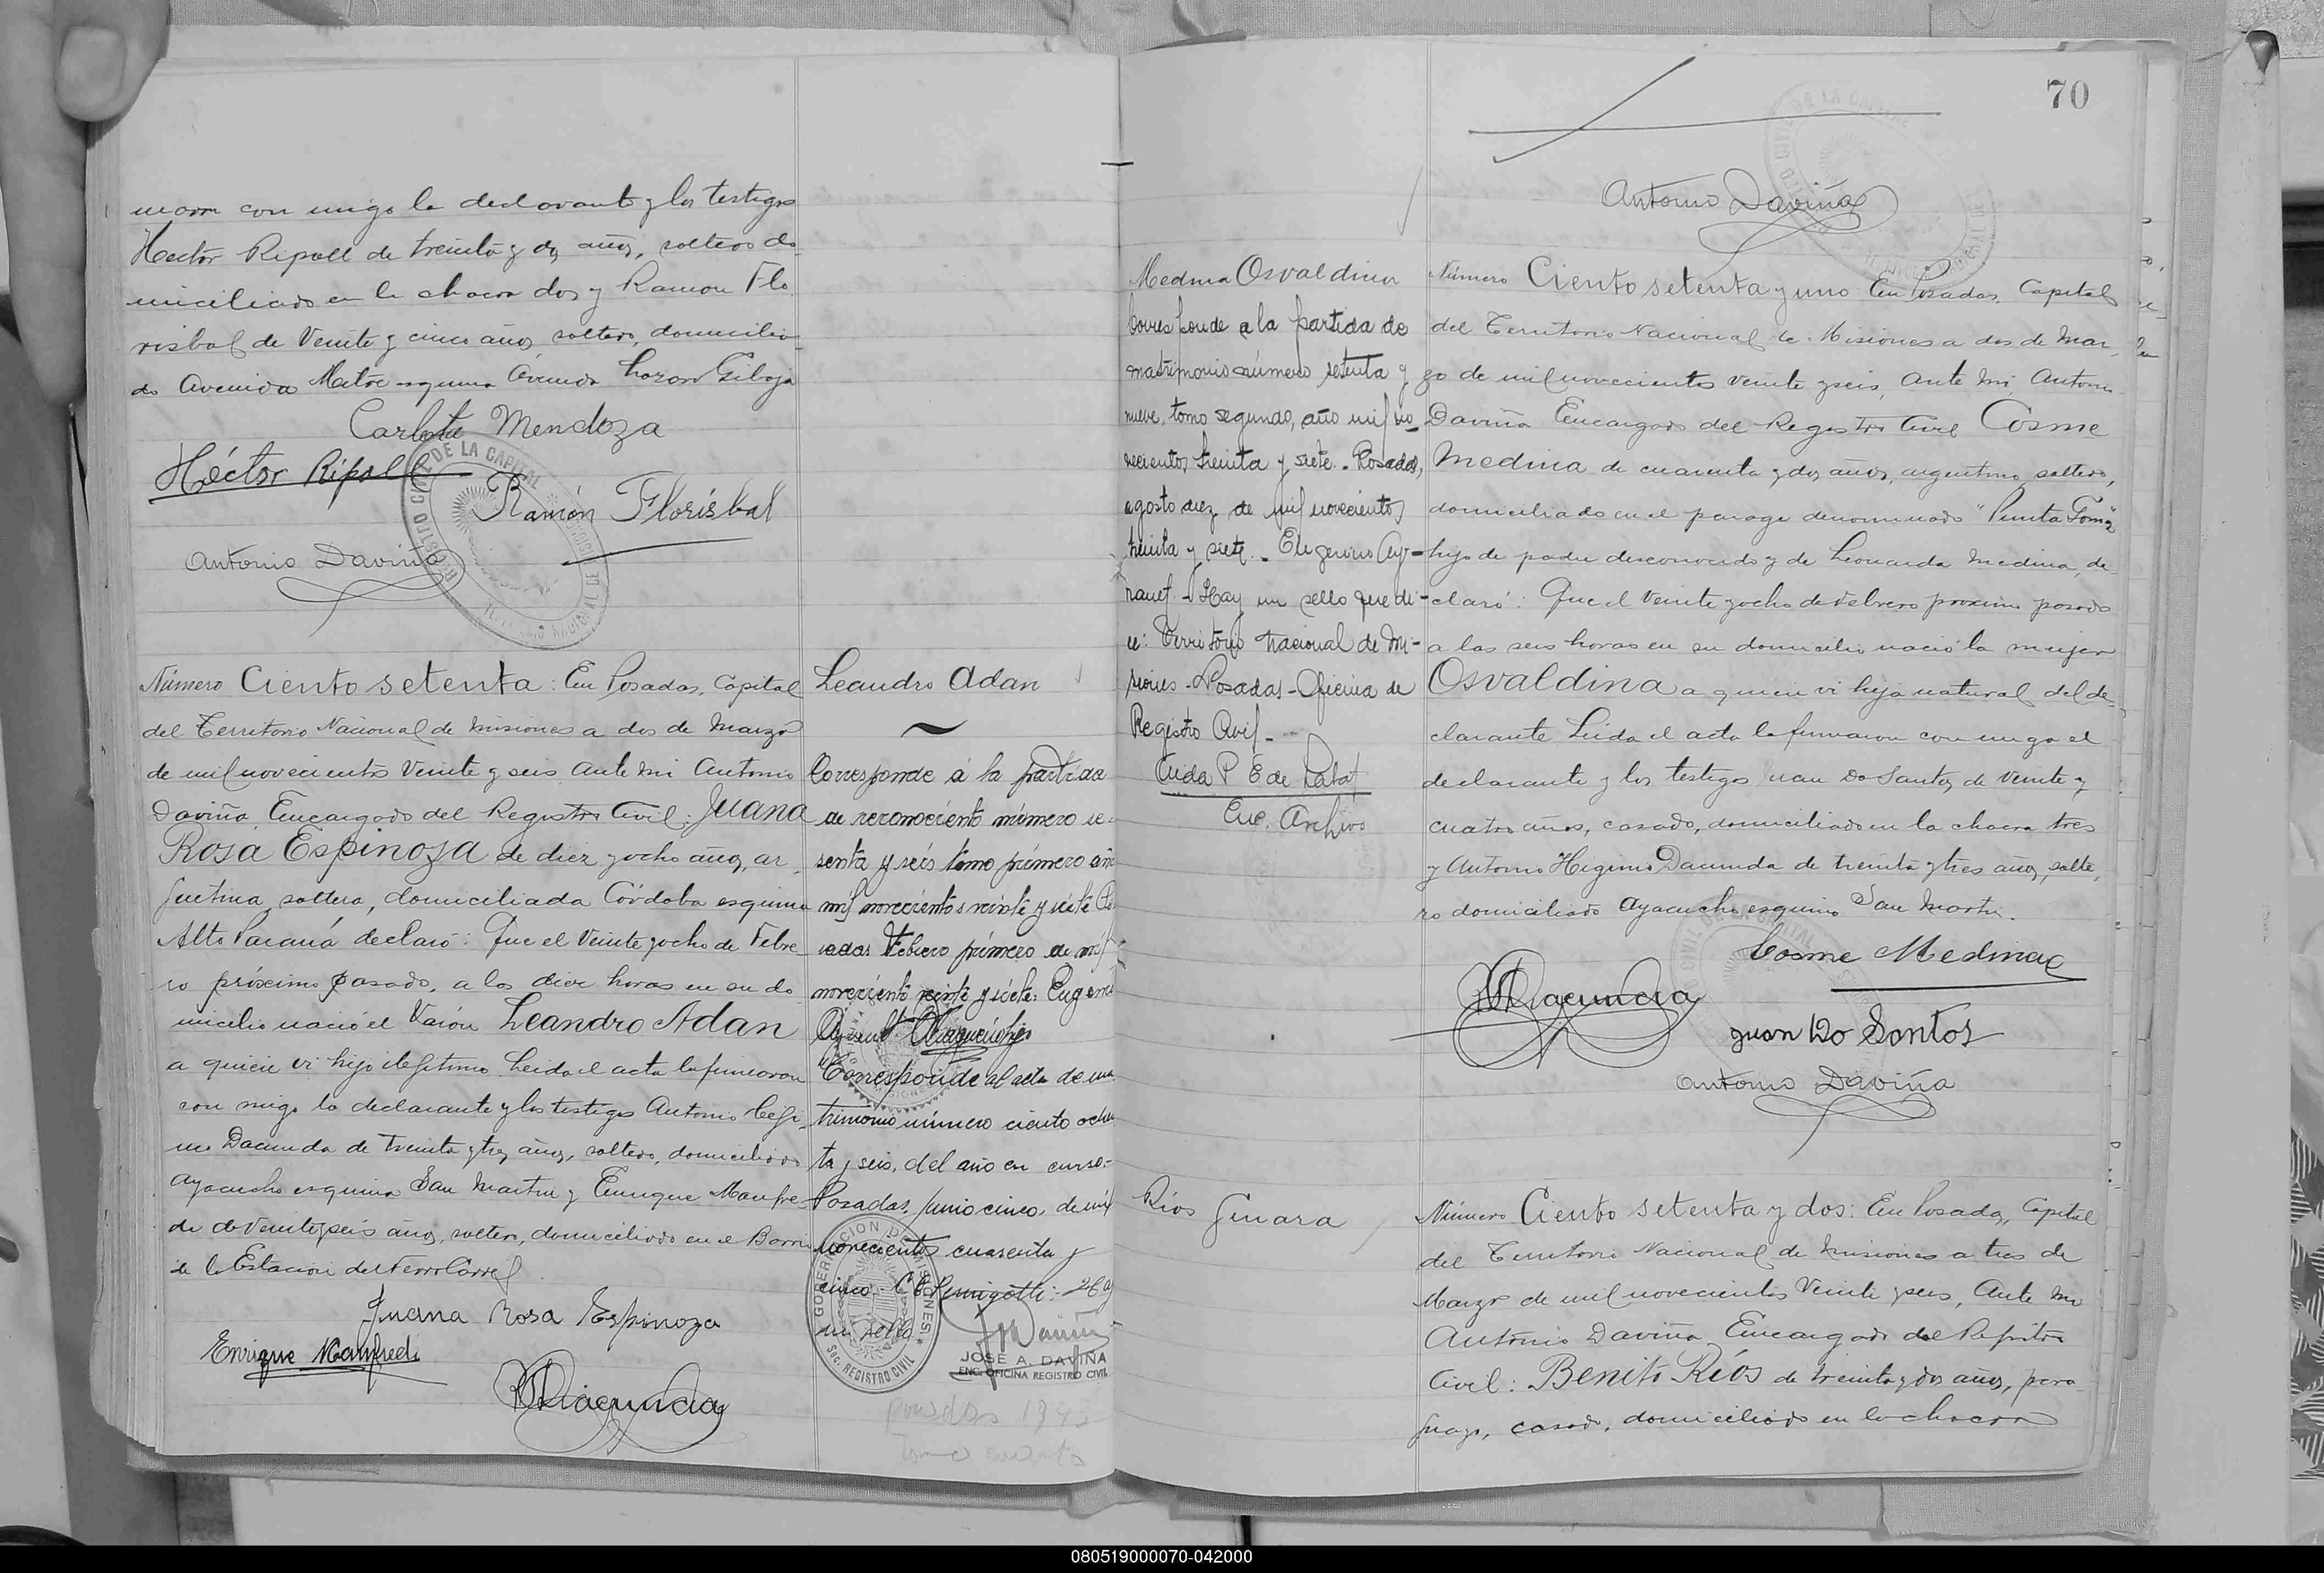 maron con migo la declarante y los testigos
Hector Ripoll de treinta y dos años, soltero do
miciliado en la chacra dos y Ramon Flo
risbal de Veinte y cinco años soltero, domicilia
do Avenida Mitre esquina Avenida
Carlota Mendoza
Héctor Ripoll
Ramón Florisbal
Antonio Daviña
REGISTRO CIVIL DE LA CAPITAL
Número Ciento setenta: En Posadas, Capital
del Territorio Nacional de Misiones a dos de Marzo
de mil novecientos Veinte y seis Ante mi Antonio
Daviña, Encargado del Registro Civil: Juana
Rosa Espinoza de diez y ocho años, ar
gentina, soltera, domiciliada Córdoba esquina
Alto Paraná declaró: Que el Veinte y ocho de Febre
ro próximo pasado, a las diez horas en su do
micilio nació el Varón Leandro Adan
a quien vi hijo ilegitimo. Leida el acta la firmaron
con migo la declarante y los testigos Antonio Higi
no Dacunda de treinta y tres años, soltero, domiciliado
Ayacucho esquina San Martin y Enrique Manfre
di de Veinte y seis años, soltero, domiciliado en el Barrio
de la Estacion del Ferro Carril
Juana Rosa Espinoza
Enrique Manfredi
Dacunda
Leandro Adan
Corresponde á la partida
de reconociento número se
senta y seis tomo primero año
mil novecientos veinte y siete Po
sadas Febrero primero de mil
novecientos veinte y siete: Eugenio
Corresponde al acta de ma
trimonio número ciento ochen
ta y seis, del año en curso.-
Posadas, junio cinco, de mil
novecientos cuarenta y
cinco. Hay
un sello
GOBERNACION DE MISIONES
SEC. REGISTRO CIVIL
JOSE A. DAVIÑA
ENC. OFICINA REGISTRO CIVIL
Posadas 1945
70
Antonio Daviña
Medina Osvaldina
Corresponde a la partida de
matrimonio número setenta y
nueve, tomo segundo, año mil no-
vecientos treinta y siete.- Posadas,
agosto diez de mil novecientos
treinta y siete.-
Hay un sello que di-
ce: Territorio Nacional de Mi-
siones - Posadas - Oficina de
Registro Civil -
Enc. Archivo
Número Ciento setenta y uno En Posadas, Capital
del Territorio Nacional de Misiones a dos de Mar
zo de mil novecientos veinte y seis, Ante mi Antonio
Daviña Encargado del Registro Civil Cosme
Medina de cuarenta y dos años, argentino, soltero,
domiciliado en el parage denominado "Punta Goma"
hijo de padre desconocido y de Leonarda Medina, de
claró: Que el Veinte y ocho de Febrero proximo pasado
a las seis horas en su domicilio nació la mujer
Osvaldina a quien vi hija natural del de
clarante Leida el acta la firmaron con migo el
declarante y los testigos Juan Do Santos de veinte y
cuatro años, casado, domiciliado en la chacra tres
y Antonio Higinio Dacunda de treinta y tres años, solte
ro domiciliado Ayacucho esquina San Martin.
Cosme Medina
Dacunda
Juan Do Santos
Antonio Daviña
Ríos Genara
Número Ciento setenta y dos: En Posadas, Capital
del Territorio Nacional de Misiones a tres de
Marzo de mil novecientos Veinte y seis, Ante mi
Antonio Daviña Encargado del Registro
Civil: Benito Ríos de treinta y dos años, para
guayo, casado, domiciliado en la chacra
080519000070-042000